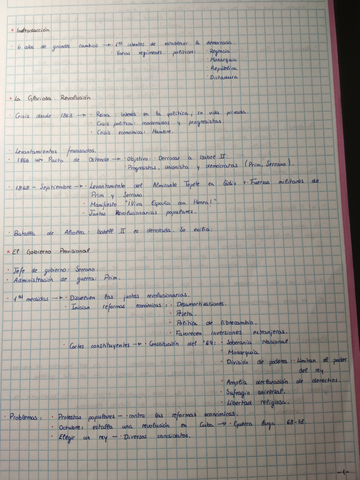 • Introducción
• 6 años de grandes cambios → 1er intento de establecer la democracia.
Varios regímenes políticos: Regencia
Monarquía
República
Dictadura
• La Gloriosa Revolución
• Crisis desde 1863 → Reina: interés en la política, su vida privada
• Crisis política: moderados y progresistas
• Crisis económica: Hambre.
• Levantamientos fracasados.
• 1866 → Pacto de Ostende → Objetivo: Derrocar a Isabel II
Progresistas, unionistas y demócratas (Prim, Serrano).
• 1868 - Septiembre → Levantamiento del Almirante Topete en Cádiz + Fuerzas militares de
Prim y Serrano
• Manifiesto "¡Viva España con Honra!"
• Juntas Revolucionarias populares.
• Batalla de Alcolea: Isabel II es derrotada. Se exilia.
• El Gobierno Provisional
• Jefe de gobierno: Serrano.
• Administración de guerra: Prim.
• 1as medidas → Disuelven las juntas revolucionarias.
Inician reformas económicas: • Desamortizaciones.
• Peseta.
• Política de librecambio.
• Favorecen inversiones extranjeras.
Cortes constituyentes → Constitución del '69: • Soberanía Nacional
• Monarquía
• División de poderes: Limitan el poder
del rey
• Amplia declaración de derechos.
• Sufragio universal.
• Libertad religiosa.
• Problemas: • Protestas populares - contra las reformas económicas.
• Octubre: estalla una revolución en Cuba → Guerra larga 68-78
• Elegir un rey - Diversos candidatos.